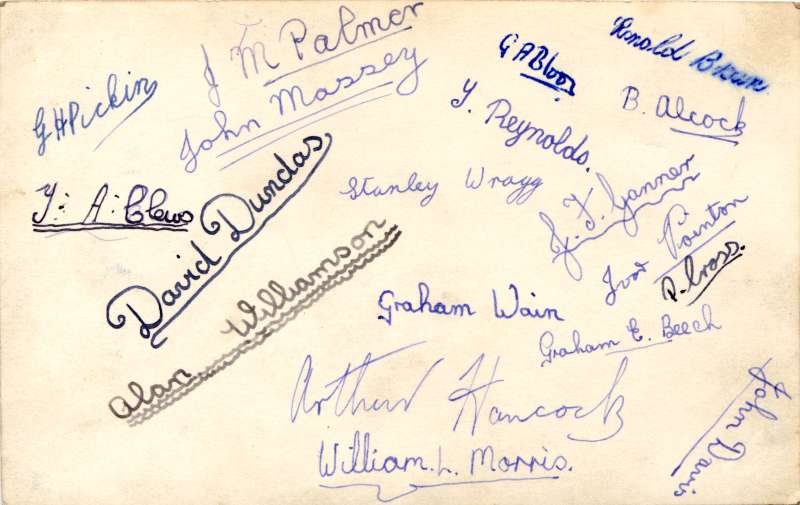 J M Palmer
John Massey
G H Pickin
G A Bloor
Ronald Brown
B. Alcock
Y. Reynolds.
Stanley Wragg
Y. A. Clews
David Dundas
Alan Williamson
J. F. Ganner
Ivor Pointon
P. Cross.
Graham Wain
Graham E. Beech
Arthur Hancock
William. L. Morris.
John Davis